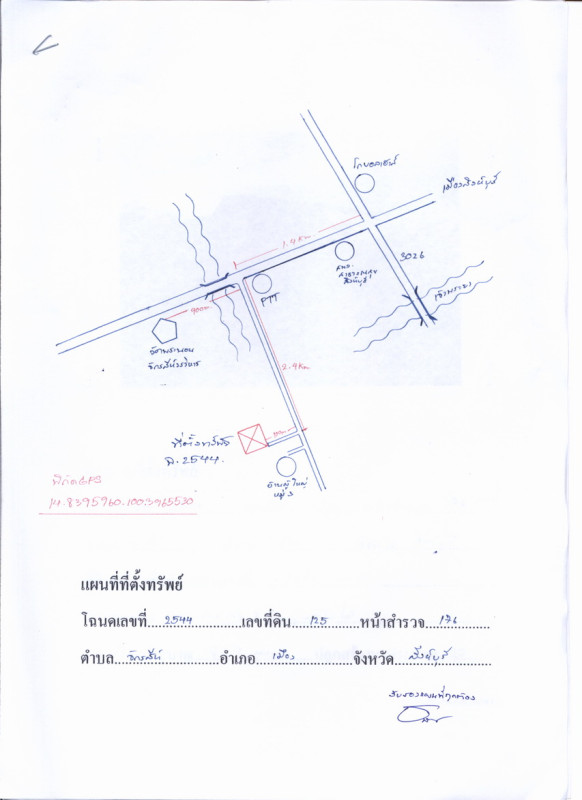 โกบอลเฮ้าส์
เมืองสิงห์บุรี
1.9 Km.
3026
สนง.
สาธารณสุข
สิงห์บุรี
เจ้าพระยา
PTT
900m
วิหารพระนอน
จักรสีห์วรวิหาร
2.9 Km
ที่ตั้งทรัพย์
ฉ.2544.
บ้านผู้ใหญ่
หมู่ 3
พิกัดGPS
14.8395960.100.3965530
แผนที่ที่ตั้งทรัพย์
โฉนดเลขที่....2544..............เลขที่ดิน....125........หน้าสำรวจ...176........
ตำบล...จักรสีห์...............อำเภอ....เมือง...............จังหวัด...สิงห์บุรี..........
รับรองแผนที่ถูกต้อง